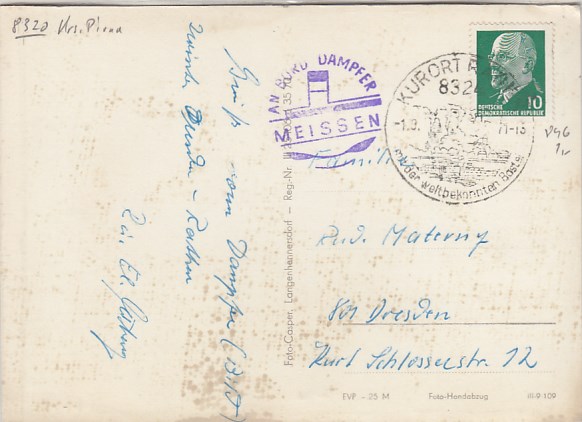 8320 Krs. Pirna
Gruß vom Dampfer (BIT)
zwischen Dresden - Rathen
AN BORD DAMPFER
MEISSEN
KURORT RATHEN
8324
-1.9. 71-18
mit der weltbekannten Bastei
DEUTSCHE
DEMOKRATISCHE REPUBLIK
10
Familie
Rud. Materny
801 Dresden
Kurt Schlosserstr. 12
Foto-Casper, Langenhennersdorf - Reg.-Nr.
EVP -25 M Foto-Handabzug III-9-109